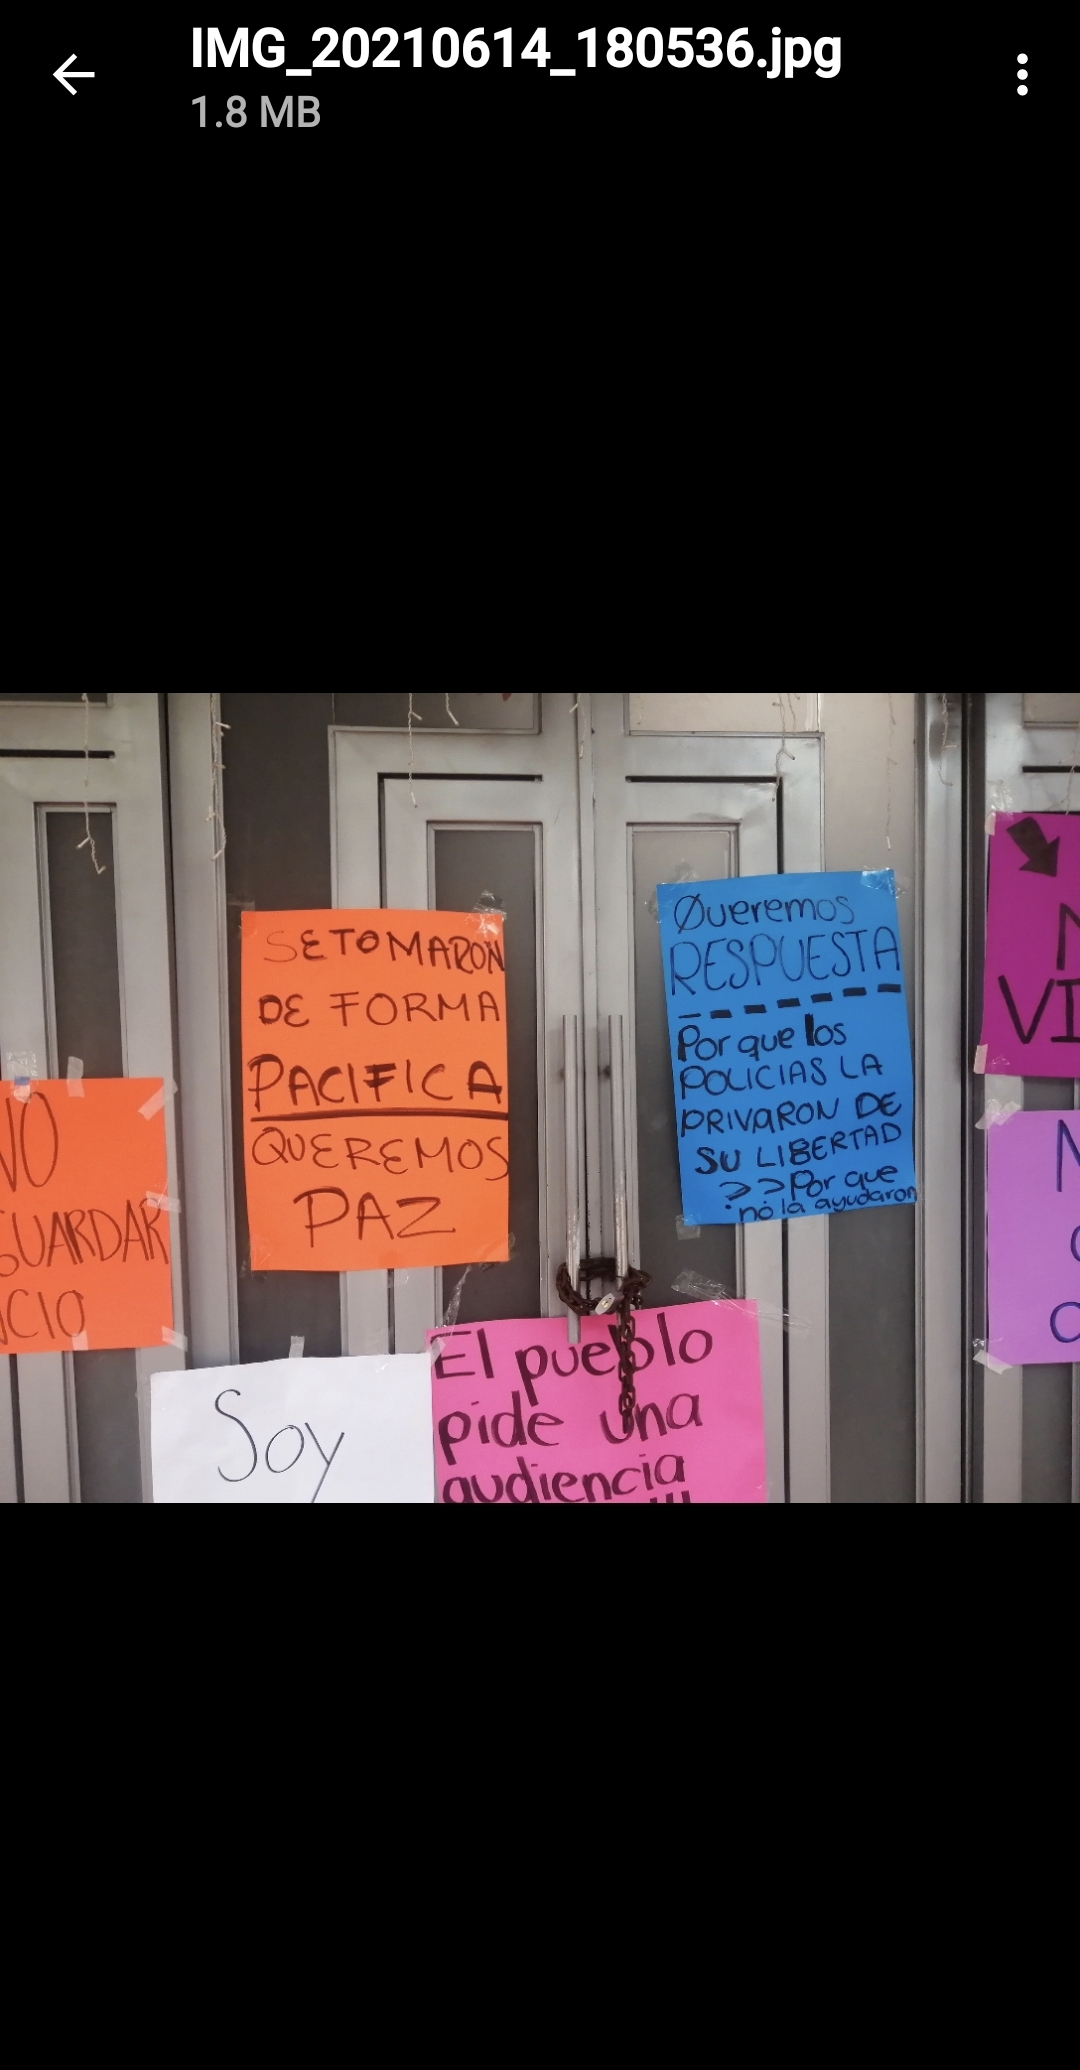 IMG_20210614_180536.jpg
1.8 MB
SE TOMARON
DE FORMA
PACIFICA
QUEREMOS
PAZ
Queremos
RESPUESTA
Por que los
POLICIAS LA
PRIVARON DE
SU LIBERTAD
??Por que
no la ayudaron
NO
GUARDAR
NCIO
Soy
El pueblo
pide una
audiencia
!!!
VI